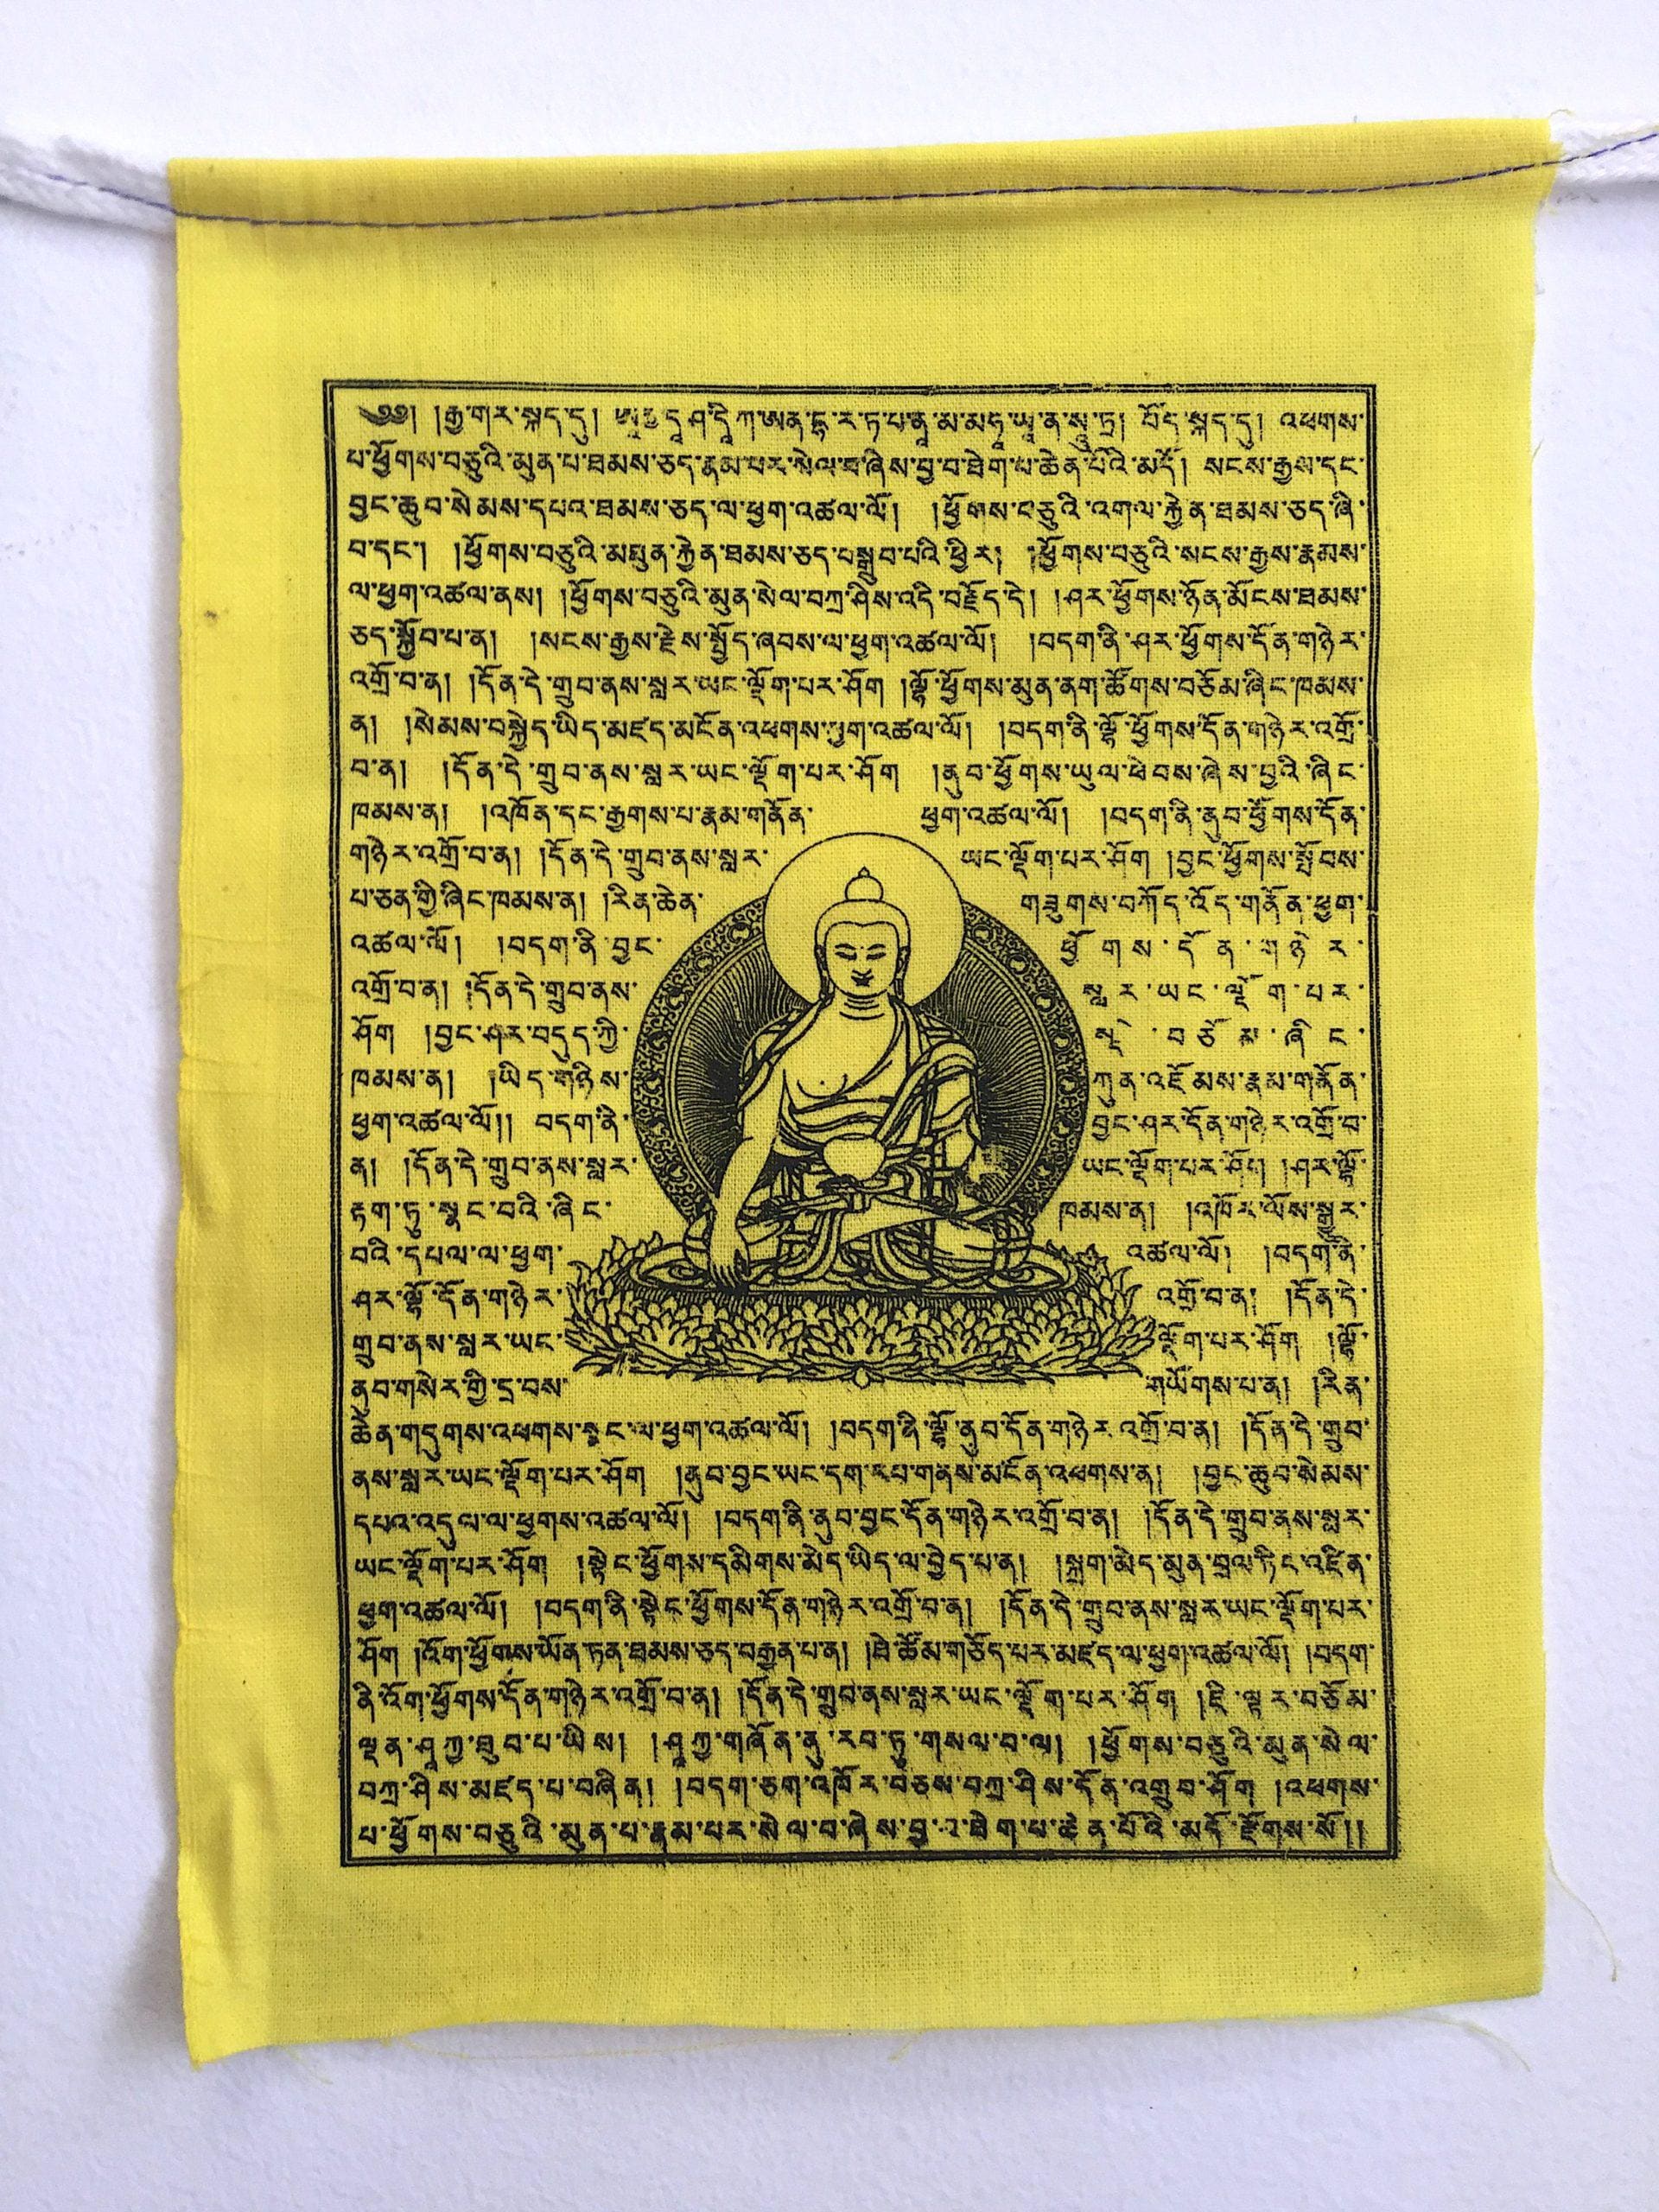 ༄༅། །རྒྱ་གར་སྐད་དུ། ཨཱརྱ་དཱ་ཤ་དཱིཀ་ཨན་དྷ་ར་ཏ་པ་ནཱ་མ་མཧཱ་ཡཱ་ན་སཱུ་ཏྲ། བོད་སྐད་དུ། འཕགས་
པ་ཕྱོགས་བཅུའི་མུན་པ་ཐམས་ཅད་རྣམ་པར་སེལ་བ་ཞེས་བྱ་བ་ཐེག་པ་ཆེན་པོའི་མདོ། སངས་རྒྱས་དང་
བྱང་ཆུབ་སེམས་དཔའ་ཐམས་ཅད་ལ་ཕྱག་འཚལ་ལོ། །ཕྱོགས་བཅུའི་འགལ་རྐྱེན་ཐམས་ཅད་ཞི་
བ་དང་། །ཕྱོགས་བཅུའི་མཐུན་རྐྱེན་ཐམས་ཅད་བསྒྲུབ་པའི་ཕྱིར། །ཕྱོགས་བཅུའི་སངས་རྒྱས་རྣམས་
ལ་ཕྱག་འཚལ་ནས། །ཕྱོགས་བཅུའི་མུན་སེལ་བཀྲ་ཤིས་འདི་བརྗོད་དེ། །ཤར་ཕྱོགས་ཉོན་མོངས་ཐམས་
ཅད་སྐྱོབ་པ་ན། །སངས་རྒྱས་རྗེས་སྤྱོད་ཞབས་ལ་ཕྱག་འཚལ་ལོ། །བདག་ནི་ཤར་ཕྱོགས་དོན་གཉེར་
འགྲོ་བ་ན། །དོན་དེ་གྲུབ་ནས་སླར་ཡང་ལྡོག་པར་ཤོག །ལྷོ་ཕྱོགས་མུན་ནག་ཚོགས་བཅོམ་ཞིང་ཁམས་
ན། །སེམས་བསྐྱེད་ཡིད་མཛད་མངོན་འཕགས་ཕྱག་འཚལ་ལོ། །བདག་ནི་ལྷོ་ཕྱོགས་དོན་གཉེར་འགྲོ་
བ་ན། །དོན་དེ་གྲུབ་ནས་སླར་ཡང་ལྡོག་པར་ཤོག །ནུབ་ཕྱོགས་ཡུལ་ཕེབས་ཞེས་བྱའི་ཞིང་
ཁམས་ན། །འཁོན་དང་རྒྱགས་པ་རྣམ་གནོན་ ཕྱག་འཚལ་ལོ། །བདག་ནི་ནུབ་ཕྱོགས་དོན་
གཉེར་འགྲོ་བ་ན། །དོན་དེ་གྲུབ་ནས་སླར་ ཡང་ལྡོག་པར་ཤོག །བྱང་ཕྱོགས་སྤོབས་
པ་ཅན་གྱི་ཞིང་ཁམས་ན། །རིན་ཆེན་ གཟུགས་བཀོད་འོད་གནོན་ཕྱག་
འཚལ་ལོ། །བདག་ནི་བྱང་ ཕྱོགས་དོན་གཉེར་
འགྲོ་བ་ན། །དོན་དེ་གྲུབ་ནས་ སླར་ཡང་ལྡོག་པར་
ཤོག །བྱང་ཤར་བདུད་ཀྱི་ སྡེ་བཅོམ་ཞིང་
ཁམས་ན། །ཡིད་གཉིས་ ཀུན་འཇོམས་རྣམ་གནོན་
ཕྱག་འཚལ་ལོ།། བདག་ནི་ བྱང་ཤར་དོན་གཉེར་འགྲོ་བ་
ན། །དོན་དེ་གྲུབ་ནས་སླར་ ཡང་ལྡོག་པར་ཤོག །ཤར་ལྷོ་
རྟག་ཏུ་སྣང་བའི་ཞིང་ ཁམས་ན། །འཁོར་ལོས་སྒྱུར་
བའི་དཔལ་ལ་ཕྱག་ འཚལ་ལོ། །བདག་ནི་
ཤར་ལྷོ་དོན་གཉེར་ འགྲོ་བ་ན། །དོན་དེ་
གྲུབ་ནས་སླར་ཡང་ ལྡོག་པར་ཤོག །ལྷོ་
ནུབ་གསེར་གྱི་དྲ་བས་ གཡོགས་པ་ན། །རིན་
ཆེན་གདུགས་འཕགས་སྣང་ལ་ཕྱག་འཚལ་ལོ། །བདག་ནི་ལྷོ་ནུབ་དོན་གཉེར་འགྲོ་བ་ན། །དོན་དེ་གྲུབ་
ནས་སླར་ཡང་ལྡོག་པར་ཤོག །ནུབ་བྱང་ཡང་དག་རབ་གནས་མངོན་འཕགས་ན། །བྱང་ཆུབ་སེམས་
དཔའ་འདུལ་ལ་ཕྱགས་འཚལ་ལོ། །བདག་ནི་ནུབ་བྱང་དོན་གཉེར་འགྲོ་བ་ན། །དོན་དེ་གྲུབ་ནས་སླར་
ཡང་ལྡོག་པར་ཤོག །སྟེང་ཕྱོགས་དམིགས་མེད་ཡིད་ལ་བྱེད་པ་ན། །སྐྲག་མེད་མུན་བྲལ་ཏིང་འཛིན་
ཕྱག་འཚལ་ལོ། །བདག་ནི་སྟེང་ཕྱོགས་དོན་གཉེར་འགྲོ་བ་ན། །དོན་དེ་གྲུབ་ནས་སླར་ཡང་ལྡོག་པར་
ཤོག །འོག་ཕྱོགས་ཡོན་ཏན་ཐམས་ཅད་བརྒྱན་པ་ན། །ཐེ་ཚོམ་གཅོད་པར་མཛད་ལ་ཕྱག་འཚལ་ལོ། །བདག་
ནི་འོག་ཕྱོགས་དོན་གཉེར་འགྲོ་བ་ན། །དོན་དེ་གྲུབ་ནས་སླར་ཡང་ལྡོག་པར་ཤོག །ཇི་ལྟར་བཅོམ་
ལྡན་ཤཱཀྱ་ཐུབ་པ་ཡིས། །ཤཱཀྱ་གཞོན་ནུ་རབ་ཏུ་གསལ་བ་ལ། །ཕྱོགས་བཅུའི་མུན་སེལ་
བཀྲ་ཤིས་མཛད་པ་བཞིན། །བདག་ཅག་འཁོར་བཅས་བཀྲ་ཤིས་དོན་འགྲུབ་ཤོག །འཕགས་
པ་ཕྱོགས་བཅུའི་མུན་པ་རྣམ་པར་སེལ་བ་ཞེས་བྱ་བ་ཐེག་པ་ཆེན་པོའི་མདོ་རྫོགས་སོ།།